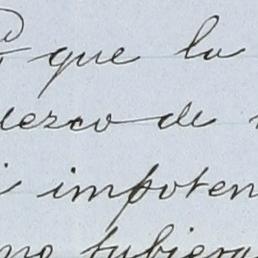 que la
dezco de
impoten
no tubiera